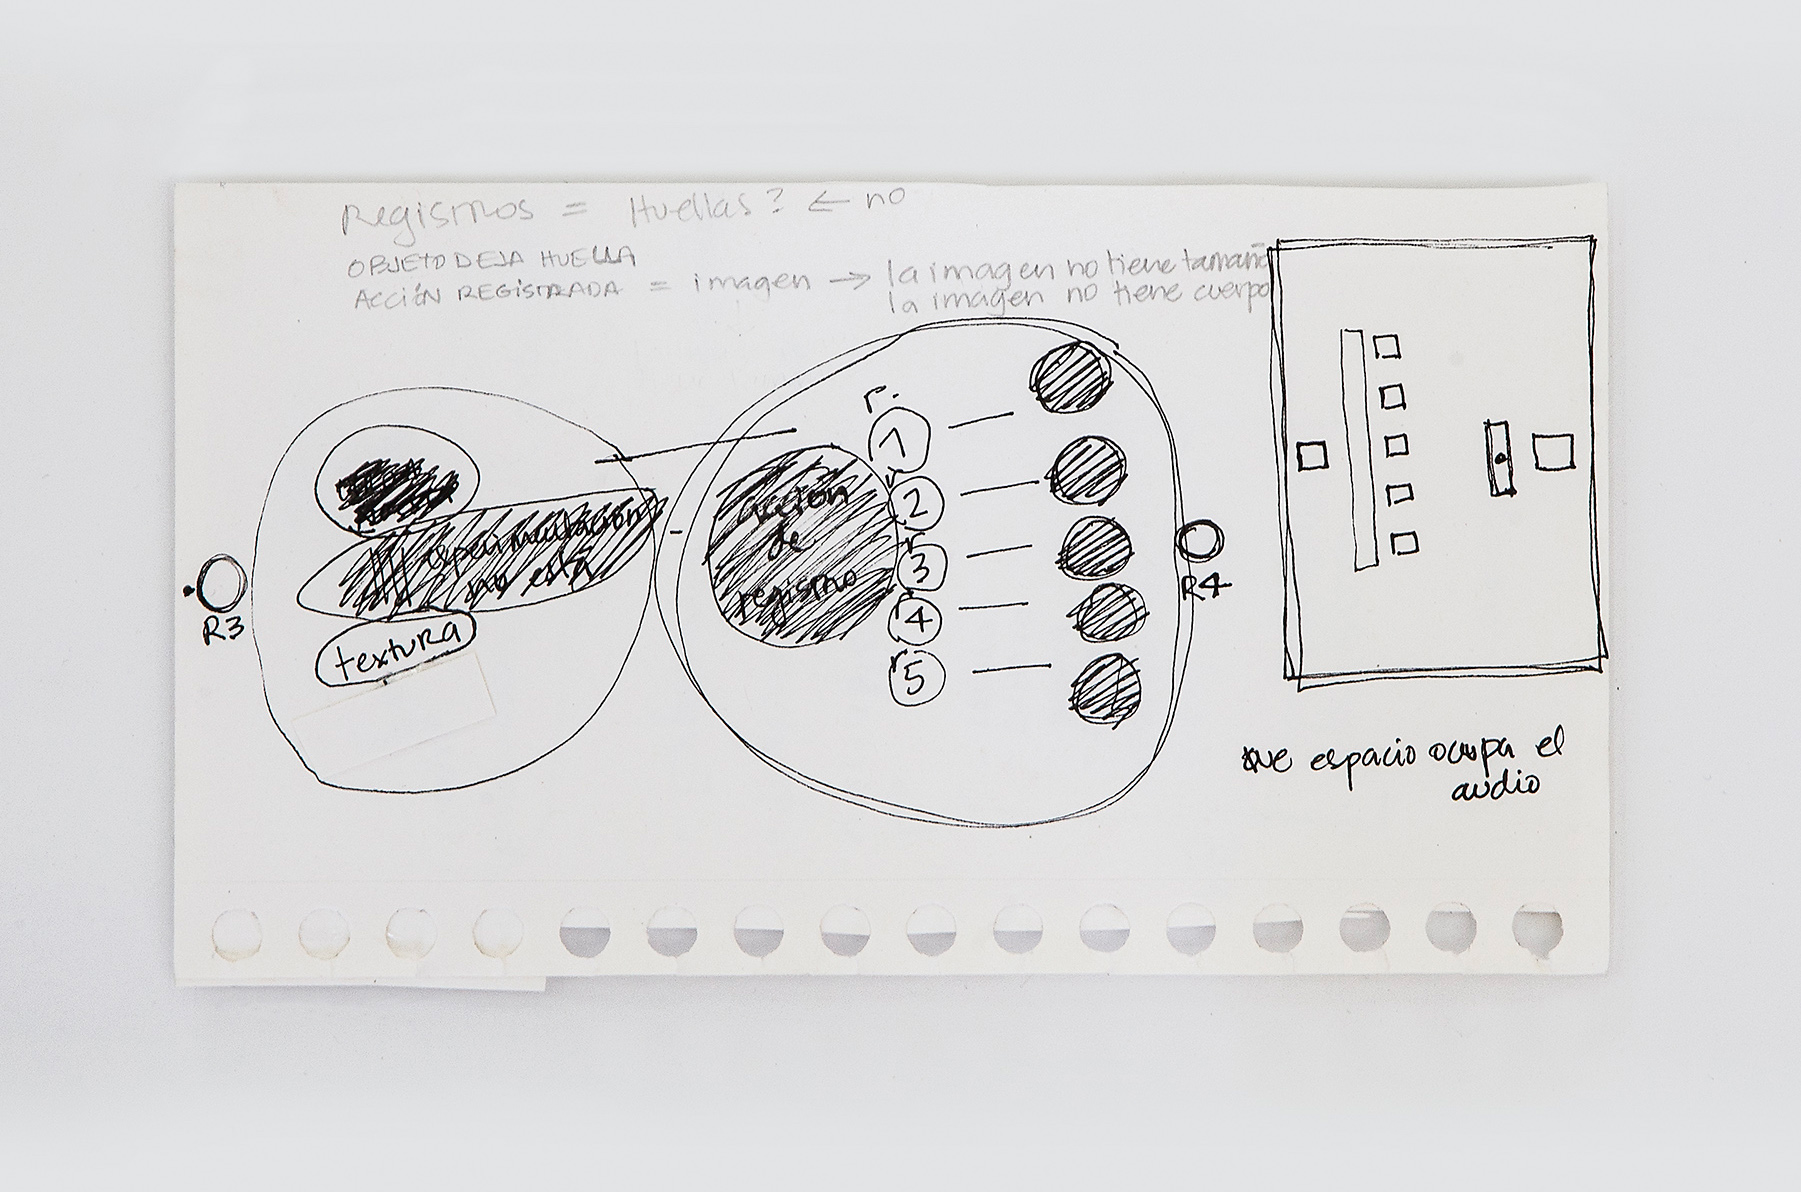 Registros = Huellas? ← no
OBJETO DEJA HUELLA
ACCIÓN REGISTRADA = imagen → la imagen no tiene tamaño
la imagen no tiene cuerpo
R3
experimentación
no está
textura
acción
de
registro
r.
1
r
2
r
3
r
4
r
5
R4
que espacio ocupa el
audio